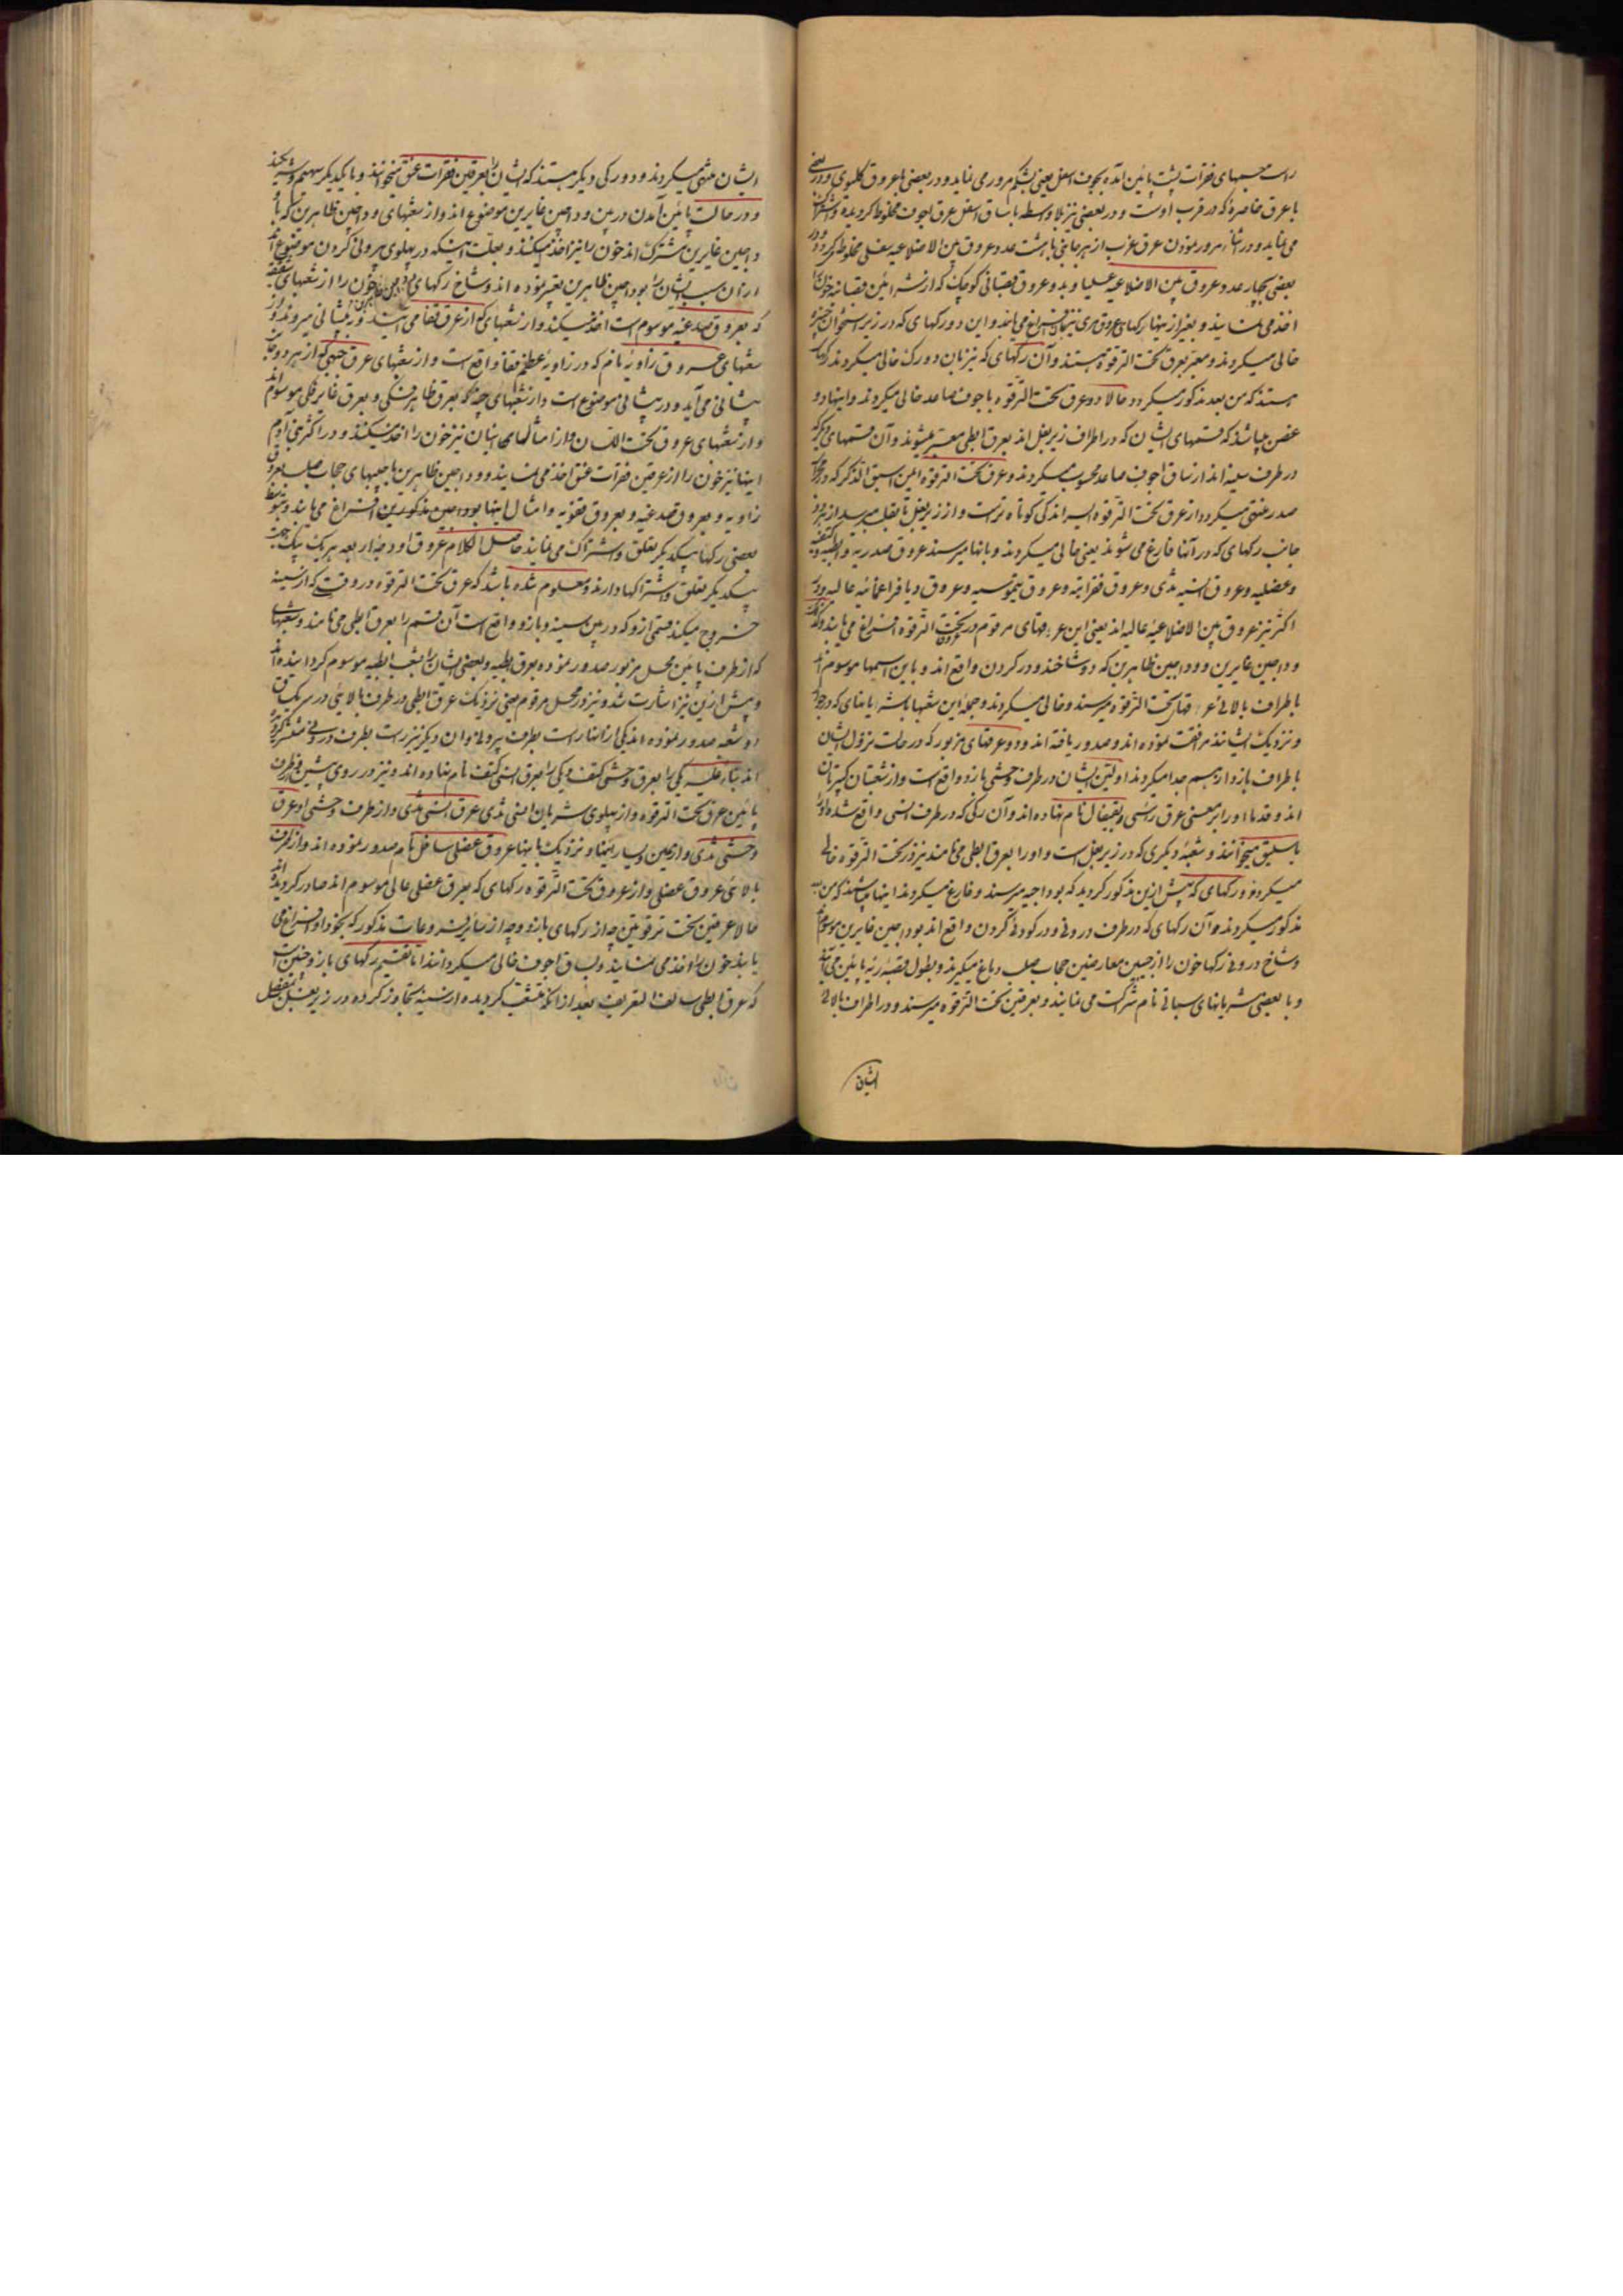 راست جسمهای فقرات پشت پائین آمده بجوف اسفل یعنی بشکم مرور می نماید و در بعضی با عروق کلوی و در بعضی
با عرق خاصره که در قرب اوست و در بعضی نیز بلا واسطه با ساق اسفل عرق اجوف مخلوط گردیده و اشتراک
می نماید و در اثناء مرور نمودن عرق عزب از هر جانبی با هشت عدد عروق بین الاضلاعیه سفلی مخلوط میگردد و در
بعضی بچهار عدد عروق بین الاضلاعیه علیا و به و عروق قصباتی کوچک که از شرائین قصبات خون را
اخذ می نمایند و بغیر از اینها رکهای عروق مری نیز بانها افراغ می یابند و این دو رکهای که در زیر استخوان
خالی میگردند و معبر بعرق تحت الترقوه هستند و آن رکهای که نیز بان دو رک خالی میگردند
هستند که من بعد مذکور میگردد حالا دو عرق تحت الترقوه با جوف صاعد خالی میگردند و اینها دو
غصن میباشد که قسمهای ایشان که در اطراف زیر بغل اند بعرق ابطی معبر میشوند و آن قسمهای دیگر که
در طرف سینه اند از ساق اجوف صاعد محسوب میگردند و عرق تحت الترقوه ایمن اسبق الذکر که در
صدر منتهی میگردد از عرق تحت الترقوه ایسر اندکی کوتاه تر است و از زیر بغل تا بقلب میرسد از هر دو
جانب رکهای که در آنها فارغ می شوند یعنی خالی میگردند و بانها میرسند عروق صدریه و ابطیه و کتفیه
و عضلیه و عروق انسیه ثدی و عروق فقراتیه و عروق تیموسیه و عروق دیافراغمائیه عالیه و در
اکثر نیز عروق بین الاضلاعیه عالیه اند یعنی این عرقهای مرقوم در تحت الترقوه افراغ می یابند
و وداجین غایرین و وداجین ظاهرین که دو شاخند و در گردن واقع اند و باین اسمها موسوم اند
با طراف بالائی عرقهای تحت الترقوه میرسند و خالی میگردند و جمله این شعبها با شریانهای که در جوار
و نزدیک ایشانند مرافقت نموده اند و صدور یافته اند و دو عرقهای مزبور که در حالت نزول ایشان
با طراف بازو از هم جدا میگردند اولین ایشان در طرف وحشی بازو واقع است و از شعبتان
اند و قدما او را بر معنی عرق رأسی و بقیفال نام نهاده اند و آن رکی که در طرف انسی واقع شده او را
باسلیق میخوانند و شعبه دیگری که در زیر بغل است و او را بعرق ابطی می نامند نیز در تحت الترقوه خالی
میگردد و رکهای که پیش ازین مذکور گردید که بوداجیه میرسند و فارغ میگردند اینها میباشند که من بعد
مذکور میگردند و آن رکهای که در طرف درونی و در گودی گردن واقع اند بوداجین غایرین موسوم
و شاخ درونی رکها خون را از جیبین معارضین حجاب صلب دماغ میگیرند و بطول قصبه ریه پائین می آیند
و با بعضی شریانهای سباتی نام شرکت می نمایند و بعرقین تحت الترقوه میرسند و در اطراف بالائی
ایشان
ایشان منتهی میگردند و دو رکی دیگر هستند که ایشان را بعرقین فقرات عنق میخوانند و با یکدیگر
و در حالت پائین آمدن در بین وداجین غایرین موضوع اند و از شعبهای وداجین ظاهرین که با
وداجین غایرین مشترک اند خون را نیز اخذ میکنند و بعلت اینکه در پهلوی بیرونی گردن موضوع اند
از آن سبب ایشان را بوداجین ظاهرین تعبیر نموده اند و شاخ رکهای خون را از شعبهای
که بعروق صدغیه موسوم است اخذ میکند و از شعبهای که از عرق قفا می آیند و به پیشانی میروند و از
شعبهای عروق زاویه نام که در زاویه عظیم مقله واقع است و از شعبهای عرق جبهی که از هر دو جانب
پیشانی می آید و در پیشانی موضوع است و از شعبهای چند که بعرق ظاهر فکی و بعرق غایر فکی موسوم اند
و از شعبهای عروق تحت اللسان و از امثالهای اینان نیز خون را اخذ میکنند و در اکثر بنی آدم
اینها نیز خون را از عرقین فقرات عنق اخذ می نمایند و وداجین ظاهرین با جیبهای حجاب صلب بعروق
زاویه و بعروق صدغیه و بعروق قفویه و امثال اینها بوداجین مذکورین افراغ می یابند و بتوسط
بعضی رکها بیکدیگر تعلق و اشتراک می نمایند حاصل الکلام عروق اوداجه اربعه هر یک بیک جهت
بیکدیگر تعلق و اشتراکها دارند و معلوم شده باشد که عرق تحت الترقوه در وقتی که از سینه
خروج میکند قسمی ازو که در بین سینه و بازو واقع است آن قسم را بعرق ابطی می نامند و شعبهای
که از طرف پائین محل مزبور صدور نموده بعرق ابطیه و بعضی ایشان را بشعب ابطیه موسوم گردانیده اند
و پیش ازین نیز اشارت شد و نیز در محل مرقوم یعنی نزدیک عرق ابطی در طرف بالائی در سر یک ساق
دو شعبه صدور نموده اند یکی از اینها راست بطرف بیرونی و ان دیگر نیز راست بطرف درونی منتشر گردیده
اند بناء علیه یکی را بعرق وحشی کتف و یکی را بعرق انسی کتف نام نهاده اند و نیز در روی پیشین و در طرف
پائین عرق تحت الترقوه و از پهلوی شریان انسی ثدی عرق انسی ثدی و از طرف وحشی او عرق
وحشی ثدی و از یمین و یسار اینها و نزدیک باینها عروق عضلی سافل نام صدور نموده اند و از طرف
بالائی عروق عضلی و از عروق تحت الترقوه رکهای که بعرق عضلی عالی موسوم اند صادر گردیده اند
حالا عرقین تحت ترقوتین چه از رکهای بازو و چه از سایرینه و عادت مذکور که بخود او افراغ می
یابند خون را اخذ می نمایند و بساق اجوف خالی میگردانند اما تقسیم رکهای بازو چنین است
که عرق ابطی سالف التعریف بعد از آنکه منشعب گردیده از سینه تجاوز کرده در زیر بغل بمفصل